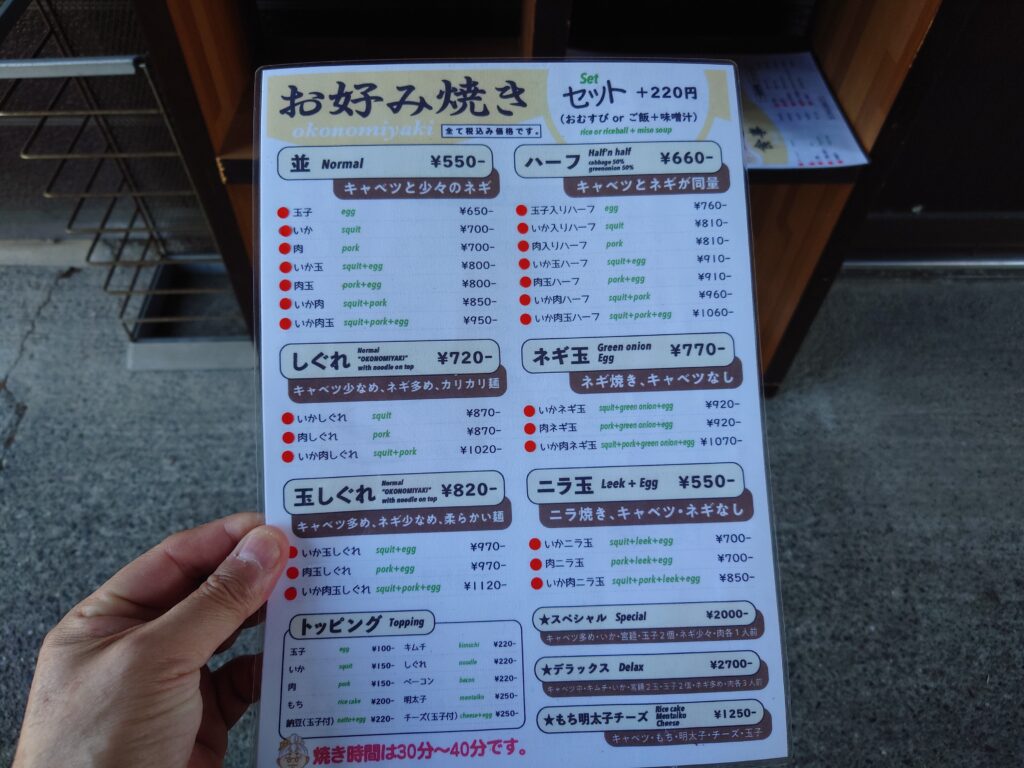 お好み焼き
okonomiyaki
全て税込み価格です。
Set
セット +220円
(おむすび or ご飯+味噌汁)
rice or riceball + miso soup
並 Normal ¥550-
キャベツと少々のネギ
玉子 egg ¥650-
いか squit ¥700-
肉 pork ¥700-
いか玉 squit+egg ¥800-
肉玉 pork+egg ¥800-
いか肉 squit+pork ¥850-
いか肉玉 squit+pork+egg ¥950-
ハーフ Half'n half ¥660-
cabbage 50%
greenonion 50%
キャベツとネギが同量
玉子入りハーフ egg ¥760-
いか入りハーフ squit ¥810-
肉入りハーフ pork ¥810-
いか玉ハーフ squit+egg ¥910-
肉玉ハーフ pork+egg ¥910-
いか肉ハーフ squit+pork ¥960-
いか肉玉ハーフ squit+pork+egg ¥1060-
しぐれ Normal "OKONOMIYAKI" with noodle on top ¥720-
キャベツ少なめ、ネギ多め、カリカリ麺
いかしぐれ squit ¥870-
肉しぐれ pork ¥870-
いか肉しぐれ squit+pork ¥1020-
ネギ玉 Green onion Egg ¥770-
ネギ焼き、キャベツなし
いかネギ玉 squit+green onion+egg ¥920-
肉ネギ玉 pork+green onion+egg ¥920-
いか肉ネギ玉 squit+pork+green onion+egg ¥1070-
玉しぐれ Normal "OKONOMIYAKI" with noodle on top ¥820-
キャベツ多め、ネギ少なめ、柔らかい麺
いか玉しぐれ squit+egg ¥970-
肉玉しぐれ pork+egg ¥970-
いか肉玉しぐれ squit+pork+egg ¥1120-
ニラ玉 Leek + Egg ¥550-
ニラ焼き、キャベツ・ネギなし
いかニラ玉 squit+leek+egg ¥700-
肉ニラ玉 pork+leek+egg ¥700-
いか肉ニラ玉 squit+pork+leek+egg ¥850-
トッピング Topping
玉子 egg ¥100- キムチ kimuchi ¥220-
いか squit ¥150- しぐれ noodle ¥220-
肉 pork ¥150- ベーコン bacon ¥220-
もち rice cake ¥200- 明太子 mentaiko ¥250-
納豆(玉子付) natto+egg ¥220- チーズ(玉子付) cheese+egg ¥250-
★スペシャル Special ¥2000-
キャベツ多め・いか・玉子2個・ネギ少々・肉各1人前
★デラックス Delax ¥2700-
キャベツ中・キムチ・いか・玉子2個・ネギ多め・肉各3人前
★もち明太子チーズ Rice cake Mentaiko Cheese ¥1250-
キャベツ・もち・明太子・チーズ・玉子
焼き時間は30分〜40分です。